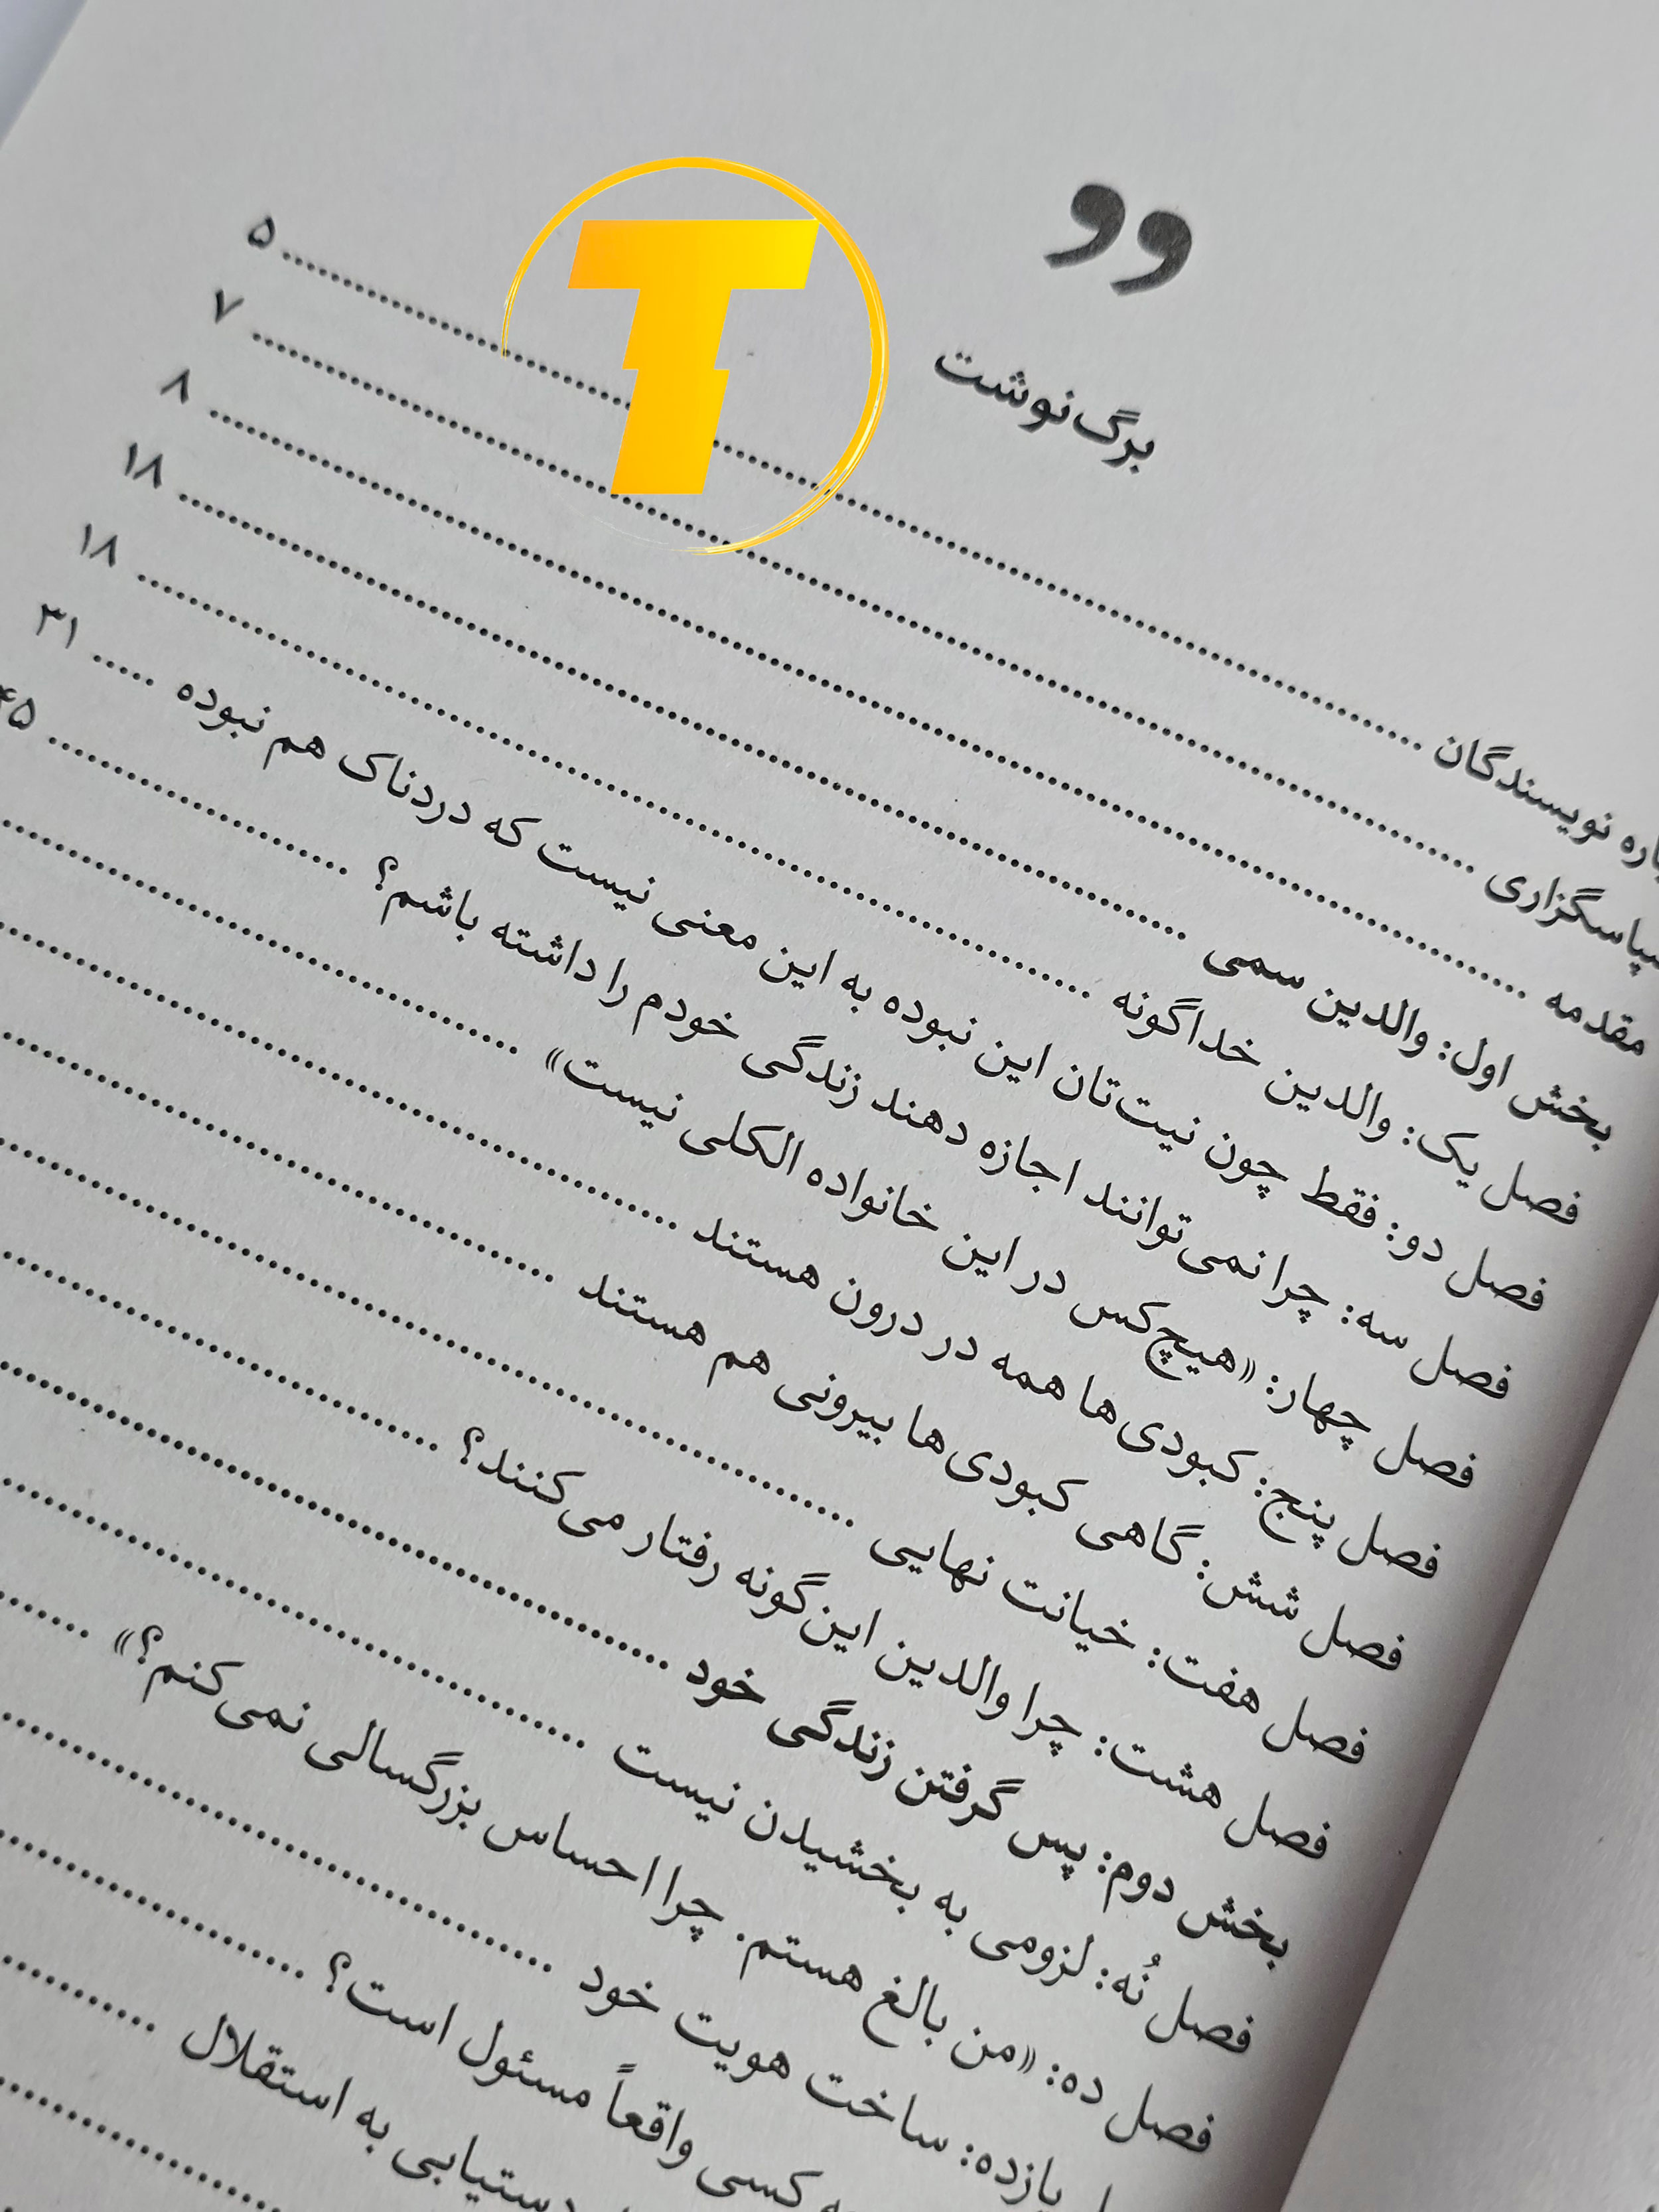 برگ‌نوشت
نویسندگان ........ ۵
سپاسگزاری ........ ۷
مقدمه ........ ۸
بخش اول: والدین سمی ........ ۱۸
فصل یک: والدین خداگونه ........ ۱۸
فصل دو: فقط چون نیت‌تان این نبوده به این معنی نیست که دردناک هم نبوده ..... ۳۱
فصل سه: چرا نمی‌توانند اجازه دهند زندگی خودم را داشته باشم؟ ........ ۴۵
فصل چهار: «هیچ‌کس در این خانواده الکلی نیست» ........
فصل پنج: کبودی‌ها همه در درون هستند ........
فصل شش: گاهی کبودی‌ها بیرونی هم هستند ........
فصل هفت: خیانت نهایی ........
فصل هشت: چرا والدین این‌گونه رفتار می‌کنند؟ ........
بخش دوم: پس گرفتن زندگی خود ........
فصل نُه: لزومی به بخشیدن نیست ........
فصل ده: «من بالغ هستم. چرا احساس بزرگسالی نمی‌کنم؟» ........
یازده: ساخت هویت خود ........
کسی واقعاً مسئول است؟ ........
دستیابی به استقلال ........